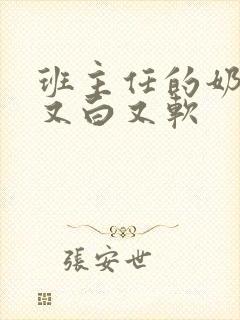 班主任的奶
又白又软
張安世